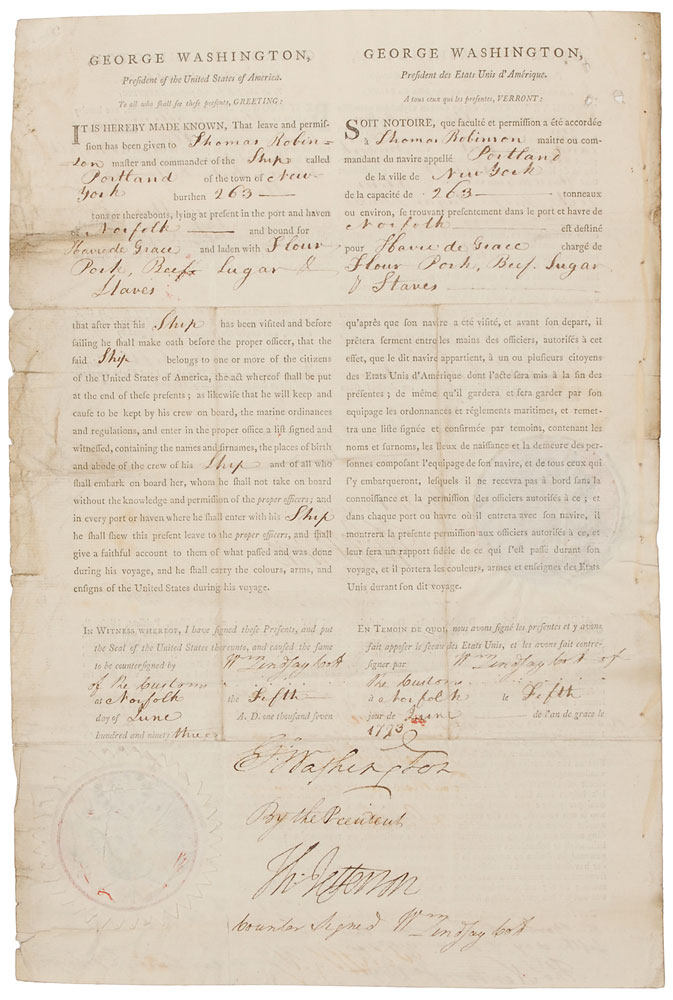 GEORGE WASHINGTON,
President of the United States of America.
To all who shall see these presents, GREETING:
IT IS HEREBY MADE KNOWN, That leave and permis-
sion has been given to Thomas Robin=
son master and commander of the Ship called
Portland of the town of New
York burthen 263
tons or thereabouts, lying at present in the port and haven
of Norfolk and bound for
Havre de Grace and laden with Flour
Pork, Beef Sugar &
Staves
that after that his Ship has been visited and before
sailing he shall make oath before the proper officer, that the
said Ship belongs to one or more of the citizens
of the United States of America, the act whereof shall be put
at the end of these presents; as likewise that he will keep and
cause to be kept by his crew on board, the marine ordinances
and regulations, and enter in the proper office a list signed and
witnessed, containing the names and sirnames, the places of birth
and abode of the crew of his Ship and of all who
shall embark on board her, whom he shall not take on board
without the knowledge and permission of the proper officers; and
in every port or haven where he shall enter with his Ship
he shall shew this present leave to the proper officers, and shall
give a faithful account to them of what passed and was done
during his voyage, and he shall carry the colours, arms, and
ensigns of the United States during his voyage.
IN WITNESS WHEREOF, I have signed these Presents, and put
the Seal of the United States thereunto, and caused the same
to be countersigned by Wm Lindsay Colt
of the Customs
at Norfolk the Fifth
day of June A. D. one thousand seven
hundred and ninety three
GEORGE WASHINGTON,
President des Etats Unis d'Amérique.
A tous ceux qui les presentes, VERRONT:
SOIT NOTOIRE, que faculté et permission a été accordée
à Thomas Robinson maitre ou com-
mandant du navire appellé Portland
de la ville de New York
de la capacité de 263 tonneaux
ou environ, se trouvant presentement dans le port et havre de
Norfolk est destiné
pour Havre de Grace chargé de
Flour Pork, Beef, Sugar
& Staves
qu'après que son navire a été visité, et avant son depart, il
prêtera serment entre les mains des officiers, autorisés à cet
effet, que le dit navire appartient, à un ou plusieurs citoyens
des Etats Unis d'Amérique dont l'acte sera mis à la fin des
présentes; de même qu'il gardera et fera garder par son
equipage les ordonnances et réglements maritimes, et remet-
tra une liste signée et confirmée par temoins, contenant les
noms et surnoms, les lieux de naissance et la demeure des per-
sonnes composant l'equipage de son navire, et de tous ceux qui
s'y embarqueront, lesquels il ne recevra pas à bord sans la
connoissance et la permission des officiers autorisés à ce; et
dans chaque port ou havre où il entrera avec son navire, il
montrera la presente permission aux officiers autorisés à ce, et
leur fera un rapport fidèle de ce qui s'est passé durant son
voyage, et il portera les couleurs, armes et enseignes des Etats
Unis durant son dit voyage.
EN TEMOIN DE QUOI, nous avons signé les presentes et y avons
fait apposer le sceau des Etats Unis, et les avons fait contre-
signer par Wm Lindsay Colt of
the Customs
à Norfolk le Fifth
jour de June de l'an de grace le
1793
Go Washington
By the President
Th: Jefferson
Counter Signed Wm Lindsay Colt